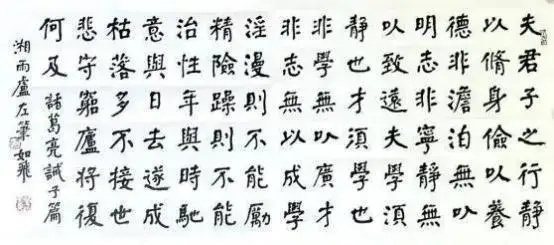 夫君子之行靜
以脩身儉以養
德非澹泊無以
明志非寧靜無
以致遠夫學須
靜也才須學也
非學無以廣才
非志無以成學
淫漫則不能勵
精險躁則不能
治性年與時馳
意與日去遂成
枯落多不接世
悲守窮廬將復
何及
諸葛亮誡子篇
湘雨盧左筆如飛